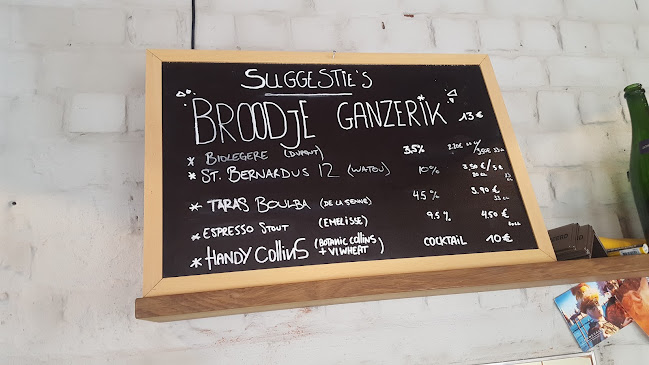 SUGGESTIE'S
BROODJE GANZERIK 13€
* BIOLEGERE (DUPONT) 3.5%
* ST. BERNARDUS 12 (WATOU) 10% 3.50€/5€
* TARAS BOULBA (DE LA SENNE) 4.5% 3.90€ 33CL
* ESPRESSO STOUT (EMELISSE) 9.5% 4.50€
* HANDY COLLINS (BOTANIC COLLINS + VIWHEAT) COCKTAIL 10€